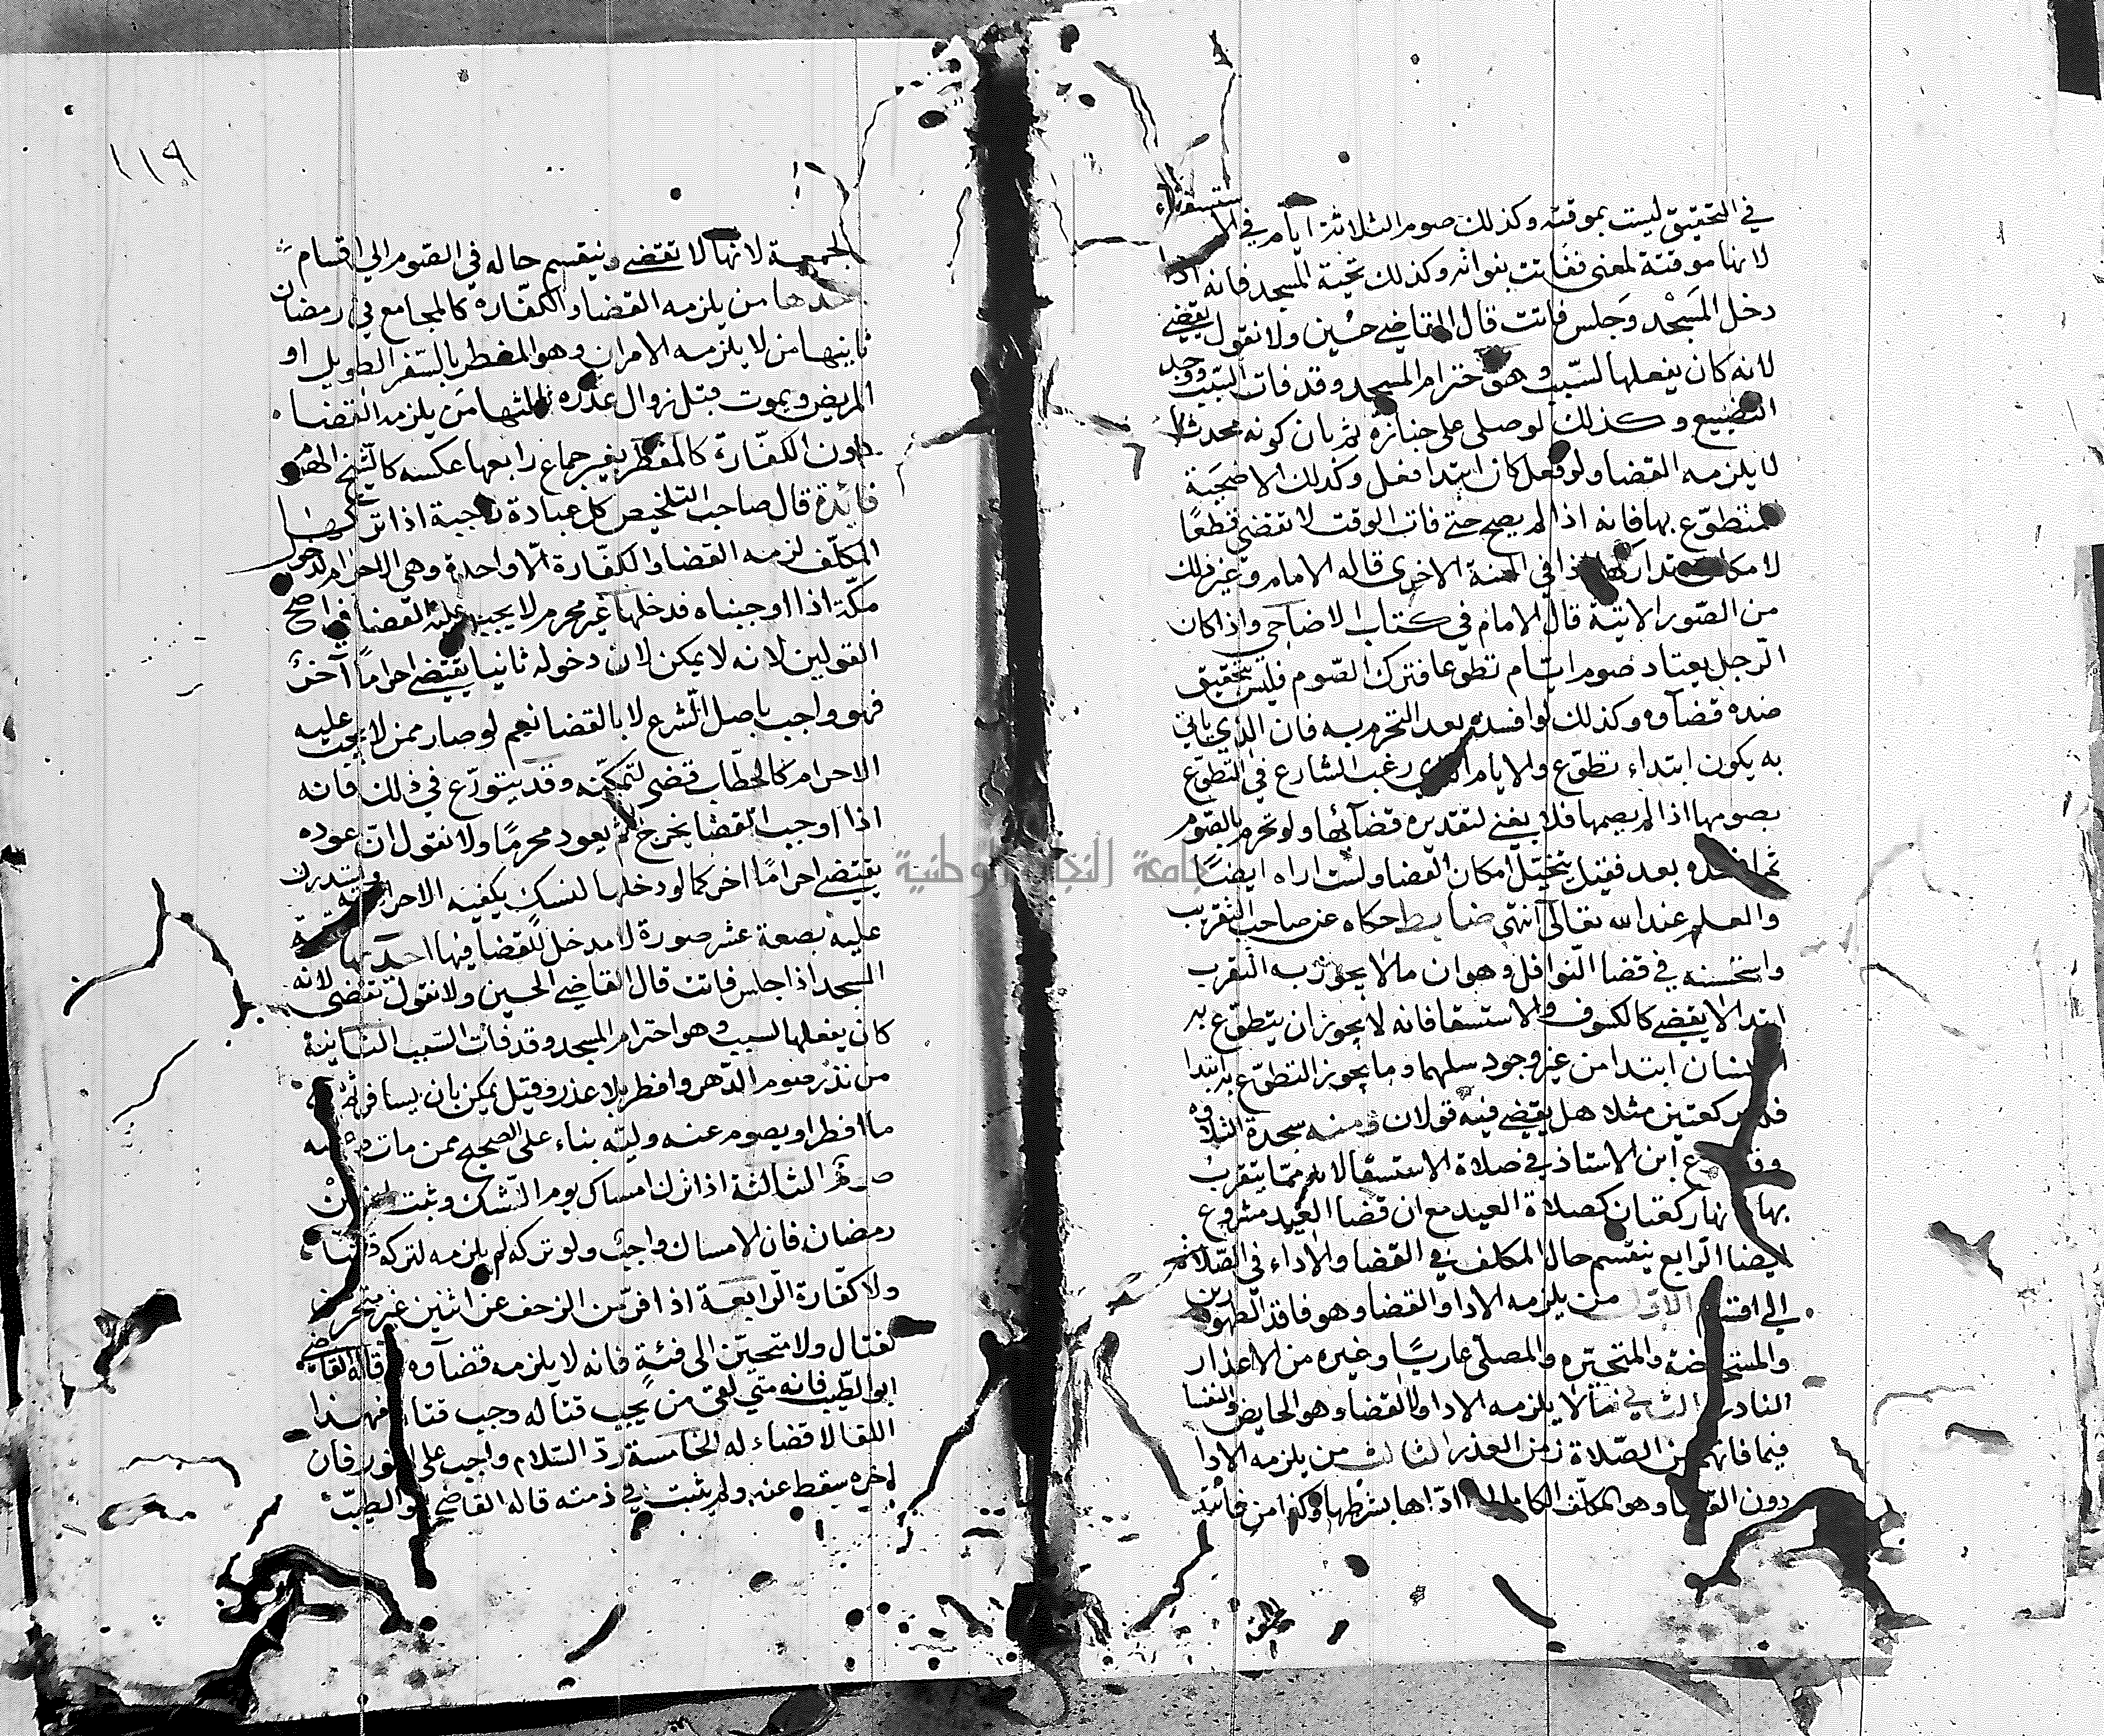 في التحقيق ليست بموقته وكذلك صوم الثلاثة ايام في الاستسقاء
لانها موقتة لمعنى ففاتت بفواته وكذلك تحية المسجد فانه اذا
دخل المسجد وجلس فاتت قال القاضي حسين ولا نقول يقضي
لانه كان يفعلها لسبب وهو احترام المسجد وقد فات السبب ووجد
التضييع وكذلك لو صلى على جنازة ثم بان كونه محدثا
لا يلزمه القضا ولو فعل كان ابتدا فعل وكذلك الاضحية
المتطوع بها فانه اذا لم يضح حتى فات الوقت لا تقضى قطعا
لامكان تداركها في السنة الاخرى قاله الامام وغير ذلك
من الصور الاتية قال الامام في كتاب الاضاحي واذا كان
الرجل يعتاد صوم ايام تطوعا فترك الصوم فليس بتحقيق
عنده قضآوه وكذلك لو افسده بعد التحرم به فان الذي ياتي
به يكون ابتداء تطوع والايام التي رغب الشارع في التطوع
بصومها اذا لم يصمها فلا يغني لتقديره قضآئها ولو تحرم بالصوم
ثم افسده بعد فقيل يتخيل امكان القضا ولست اراه ايضا
والعلم عند الله تعالى انتهى ضابط حكاه عن صاحب التقريب
واستحسنه في قضا النوافل وهو ان ما لا يجوز به التقرب
ابتدا لا يقضي كالكسوف والاستسقا فانه لا يجوز ان يتطوع به
الانسان ابتدا من غير وجود سلهما وما يجوز التطوع به ابتدا
ركعتين مثلا هل يقضي فيه قولان ومنه سجدة التلاوة
ابن الاستاذ في صلاة الاستسقا لانه مما يتقرب
بها ركعتان كصلاة العيد مع ان قضا العيد مشروع
ايضا الرابع ينقسم حال المكلف في القضا والاداء في الصلاة
الي اقسام الاول من يلزمه الادا والقضا وهو فاقد الطهورين
والمستحاضة والمتحيره والمصلي عاريا وغيره من الاعذار
النادرة الثاني من لا يلزمه الادا ولا القضا وهو الحايض والنفسا
فيما فاتهم من الصلاة زمن العذر الثالث من يلزمه الادا
دون القضا وهو المكلف الكامل اذا اداها بشرطها وكذا من فاتته
الجمعة
الجمعة لانها لا تقضي وينقسم حاله في الصوم الي اقسام
احدها من يلزمه القضا والكفاره كالمجامع في رمضان
ثانيها من لا يلزمه الامران وهو المفطر بالسفر الطويل او
المريض ويموت قبل زوال عذره ثالثها من يلزمه القضا
دون الكفارة كالمفطر بغير جماع رابعها عكسه كالشيخ الهم
فائدة قال صاحب التلخيص كل عبادة واجبة اذا تركها
المكلف لزمه القضا والكفارة الا واحدة وهي الاحرام لدخول
مكة اذا اوجبناه فدخلها غير محرم لا يجب عليه القضا في اصح
القولين لانه لا يمكن لان دخوله ثانيا يقتضي احراما آخر
فهو واجب باصل الشرع لا بالقضا نعم لو صار ممن لا يجب عليه
الاحرام كالحطاب قضى لتمكنه وقد يتورع في ذلك فانه
اذا اوجب القضا يخرج ثم يعود محرما ولا نقول ان عوده
يقتضي احراما اخر كما لو دخلها لنسك يكفيه الاحرام ويستدرك
عليه بضعة عشر صورة لا مدخل للقضا فيها احدها تحية
المسجد اذا جلس فاتت قال القاضي الحسين ولا نقول تقضى لانه
كان يفعلها لسبب وهو احترام المسجد وقد فات السبب الثانية
من نذر صوم الدهر وافطر بلا عذر وقيل يمكن بان يسافر
ما افطر او يصوم عنه وليه بناء على الصحيح ممن مات وعليه
صوم الثالثة اذا ترك امساك يوم الشك وثبت
رمضان فان الامساك واجب ولو تركه لم يلزمه لتركه قضا
ولا كفارة الرابعة اذا فر من الزحف عن اثنين غير متحرف
لقتال ولا متحيز الى فئة فانه لا يلزمه قضآوه قاله القاضي
ابو الطيب فانه متى لقى من يجب قتاله وجب قتاله فهذا
اللقا لا قضاء له الخامسة رد السلام واجب على الفور فان
اخره سقط عنه ولم يثبت في ذمته قاله القاضي ابو الطيب
١١٩
جامعة النجاح الوطنية